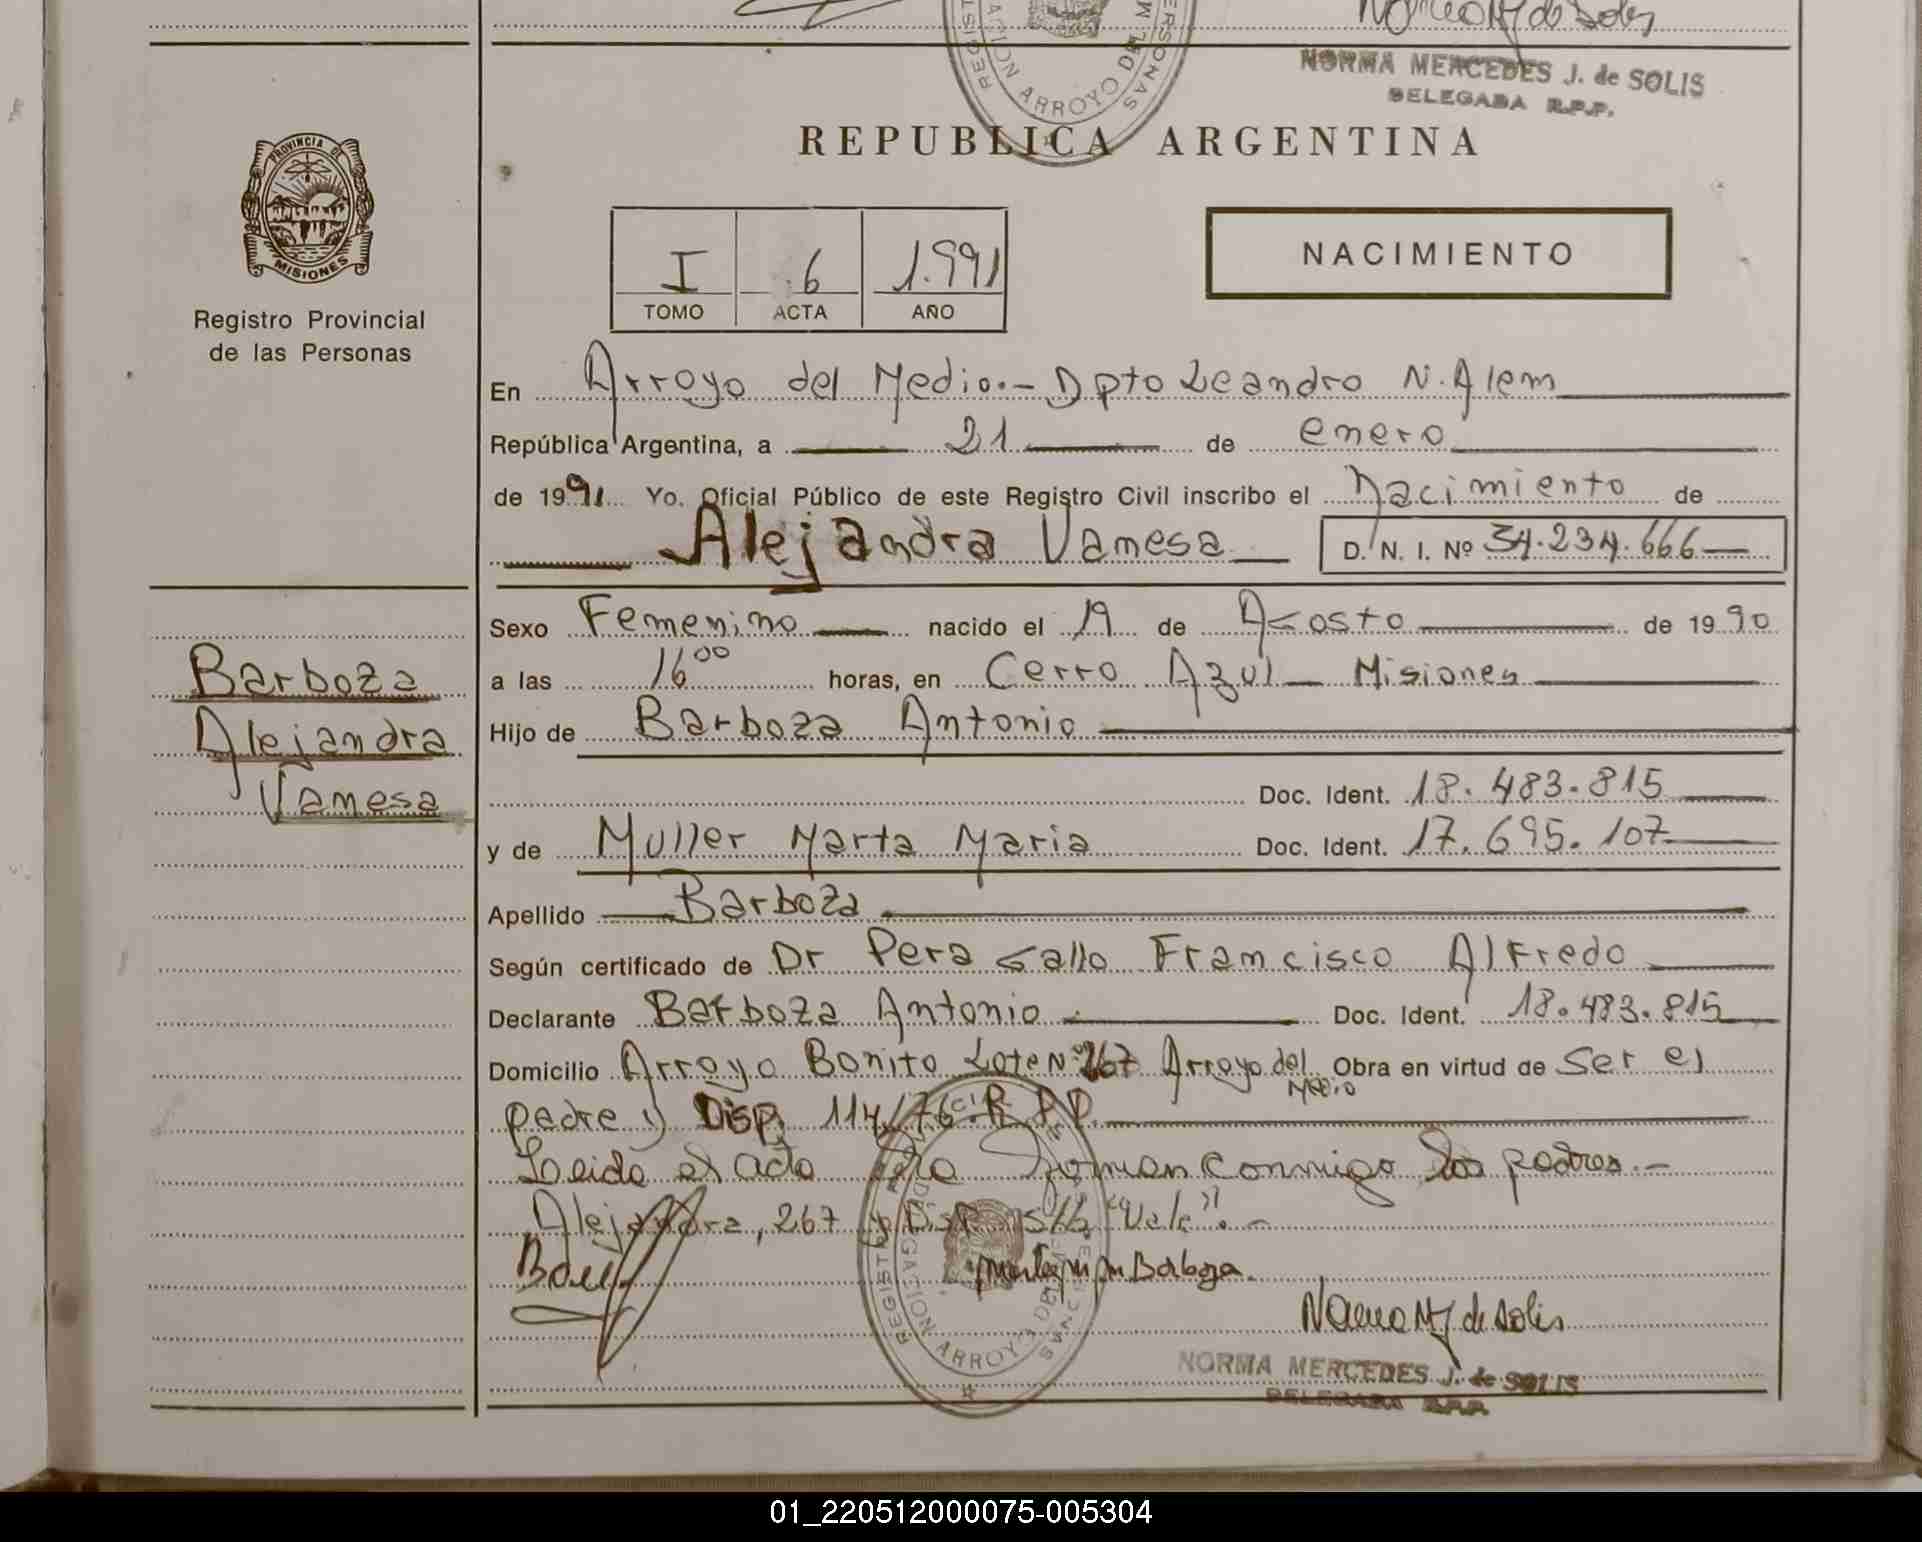 Norma M J de Solis
NORMA MERCEDES J. de SOLIS
DELEGADA R.P.P.
REPUBLICA ARGENTINA
PROVINCIA DE
MISIONES
Registro Provincial
de las Personas
I 6 1.991
TOMO ACTA AÑO
NACIMIENTO
En Arroyo del Medio.- Dpto Leandro N. Alem
República Argentina, a 21 de enero
de 1991 Yo. Oficial Público de este Registro Civil inscribo el Nacimiento de
Alejandra Vanesa D. N. I. Nº 34.234.666
Sexo Femenino nacido el 19 de Agosto de 1990
Barboza
Alejandra
Vanesa
a las 16 00 horas, en Cerro Azul - Misiones
Hijo de Barboza Antonio
Doc. Ident. 18.483.815
y de Muller Marta Maria Doc. Ident. 17.695.107
Apellido Barboza
Según certificado de Dr Pera Gallo Francisco Alfredo
Declarante Barboza Antonio Doc. Ident. 18.483.815
Domicilio Arroyo Bonito Lote Nº 267 Arroyo del Medio Obra en virtud de ser el
padre y Disp. 114/76. R.P.P.
Leida el acta la firman conmigo los padres.-
Alejandra, 267 y Disp. s/b "Vale".-
Norma M J de Solis
NORMA MERCEDES J. de SOLIS
DELEGADA R.P.P.
01_220512000075-005304